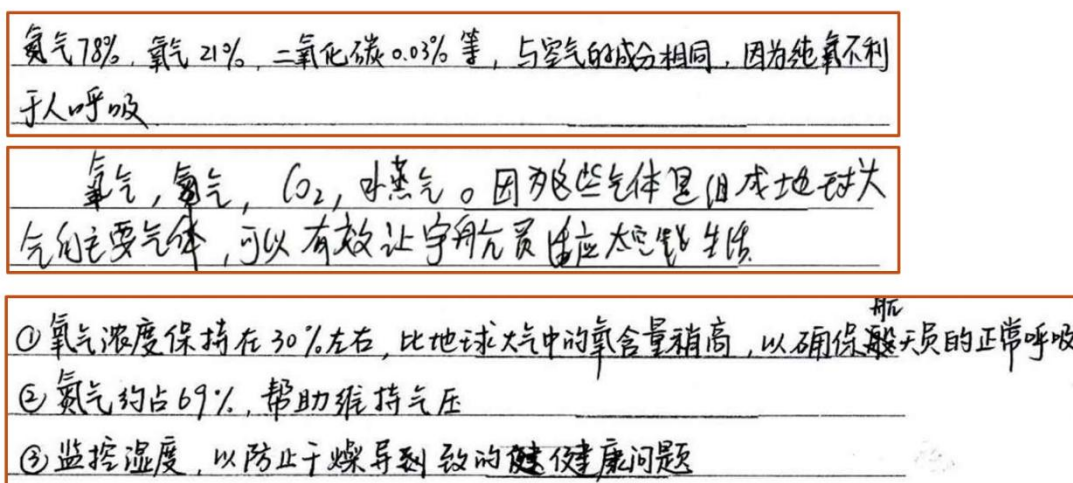 氮气78%，氧气21%，二氧化碳0.03%等，与空气的成分相同，因为纯氧不利
于人呼吸
氧气，氮气，CO₂，水蒸气。因为这些气体是组成地球大
气的主要气体，可以有效让宇航员适应太空生活.
①氧气浓度保持在30%左右，比地球大气中的氧含量稍高，以确保航天员的正常呼吸
②氮气约占69%，帮助维持气压
③监控湿度，以防止干燥导致的健康问题